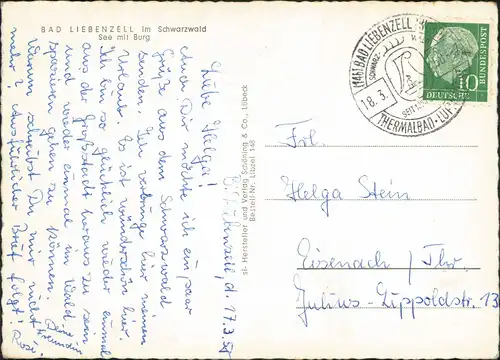 BAD LIEBENZELL im Schwarzwald
See mit Burg
(14b) BAD LIEBENZELL
SCHWARZW
18.3.
SEIT
THERMALBAD-LUFT
10
DEUTSCHE BUNDESPOST
B. Liebenzell, d. 17.3.
Liebe Helga!
Auch Dir möchte ich ein paar
Grüße aus dem Schwarzwald
senden. Ich verbringe hier meinen
Urlaub. Es ist wunderschön hier.
Ich bin so glücklich wieder einmal
aus der Großstadt heraus zu sein
und wieder einmal im Wald
spazieren gehen zu können.
Warum schreibst Du mir nicht
mehr? Ausführlicher Brief folgt!
Deine
Freundin
Rosi
sl- Hersteller und Verlag Schöning & Co., Lübeck
Bestell-Nr. Lizell 148
Frl.
Helga Stein
Eisenach / Thr.
Julius-Lippoldstr. 13